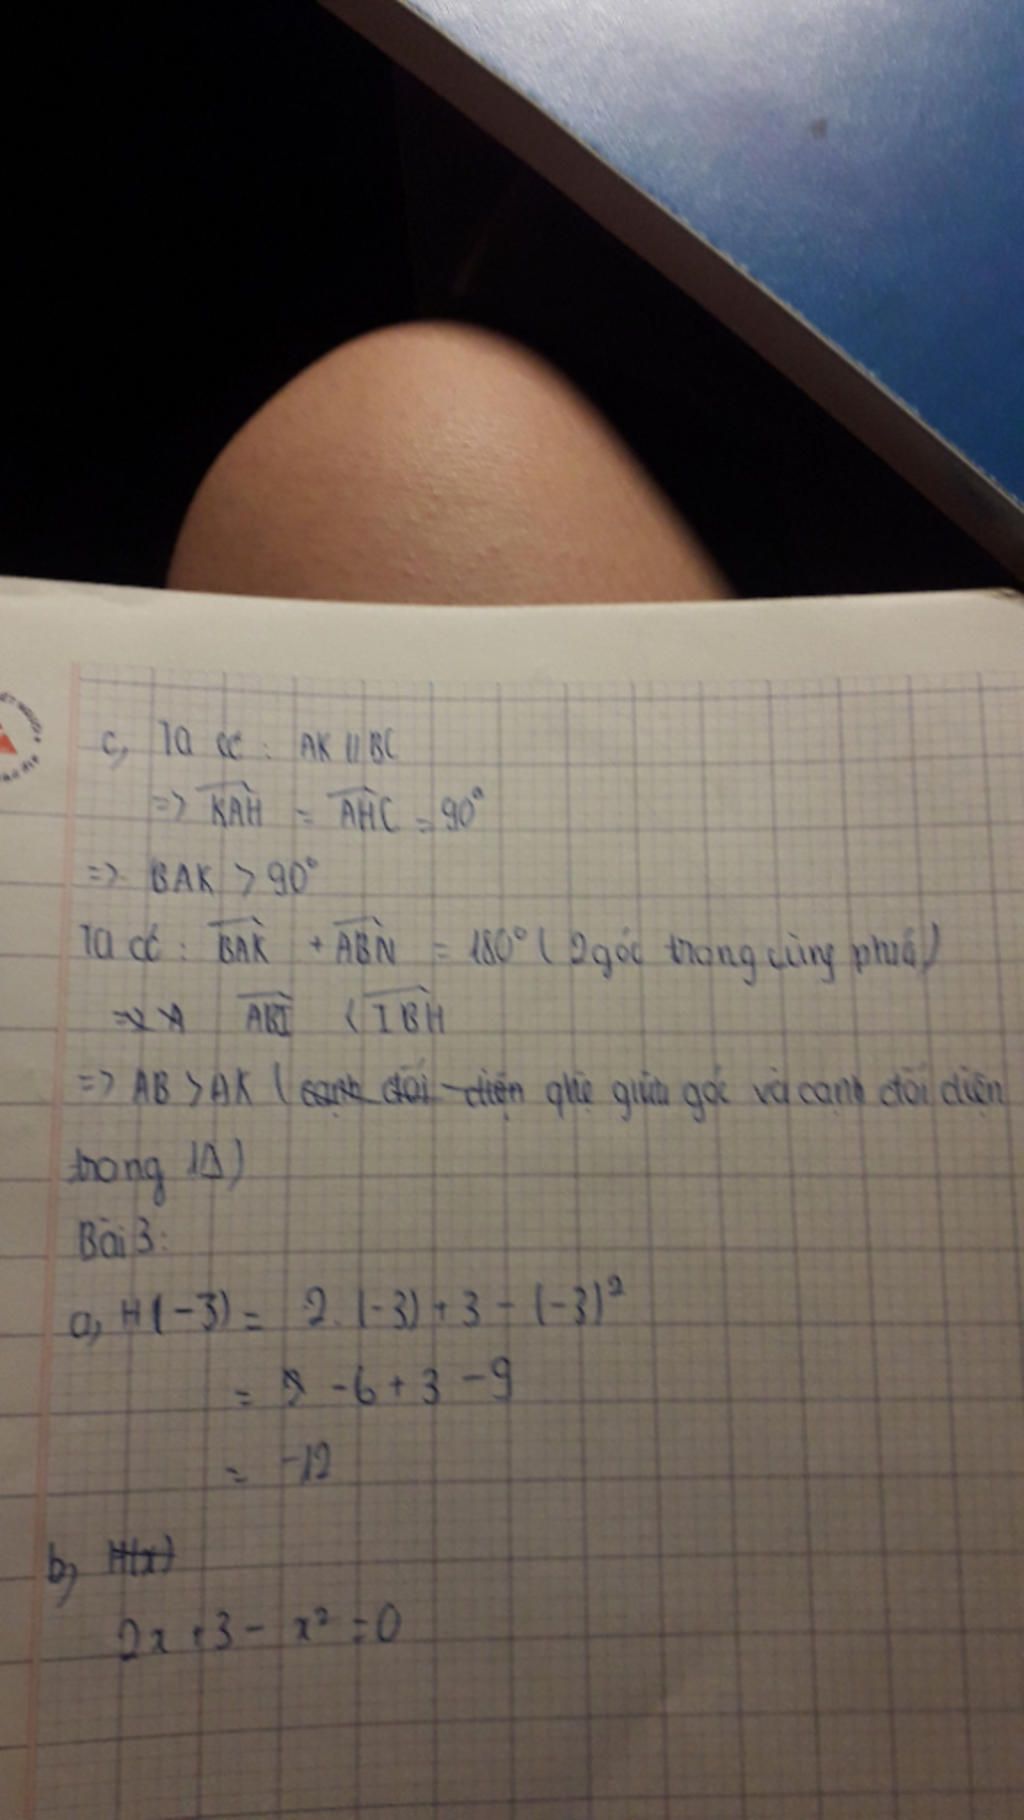 c, Ta có : AK // BC
=> KAH = AHC = 90°
=> BAK > 90°
Ta có : BAK + ABN = 180° ( 2 góc trong cùng phía )
ABI < IBH
=> AB > AK ( cạnh đối diện qhệ giữa góc và cạnh đối diện
trong 1Δ )
Bài 3:
a, H(-3) = 2.(-3) + 3 - (-3)²
= -6 + 3 - 9
= -12
b, H(x)
2x + 3 - x² = 0